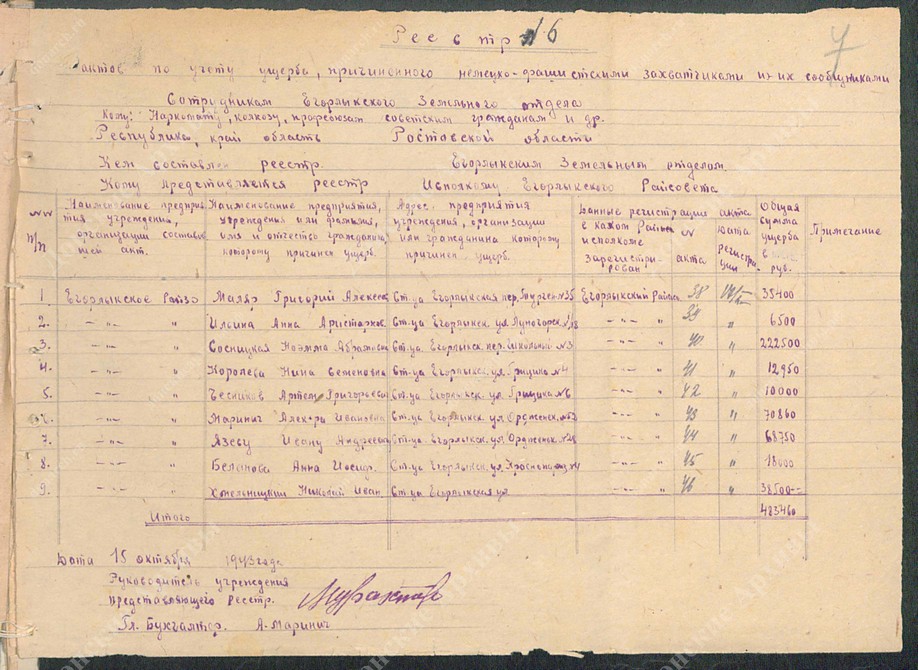 Реестр №6
7
актов по учету ущерба, причиненного немецко-фашистскими захватчиками и их сообщниками
Сотрудникам Егорлыкского Земельного отдела
Кому: Наркомату, колхозу, профсоюзам советским гражданам и др.
Республика, край область Ростовской область
Кем составлен реестр. Егорлыкским Земельным отделом.
Кому представляется реестр Исполкому Егорлыкского Райсовета
№№ п/п
Наименование предприятия учреждения, организации составивщей акт.
Наименование предприятия, учреждения или фамилия, имя и отчество гражданина, которому причинен ущерб.
Адрес предприятия учреждения, организации или гражданина которому причинен ущерб.
Данные регистрации акта
в каком Райисполкоме зарегистрирован
№ акта
Дата регистрации
Общая сумма ущерба в руб.
Примечание
1. Егорлыкское Райзо Маляр Григорий Алексеев Ст-ца Егорлыкская пер. №35 Егорлыкский Райисп 38 35400
2. —"— " Ильина Анна Аристархов. Ст-ца Егорлыкск. ул. №18 —"— " 39 " 6500
3. —"— " Сосницкая Ноэмма Абрамовна Ст-ца Егорлыкск. пер. Школьный №3 —"— " 40 " 222500
4. —"— " Королева Нина Семеновна Ст-ца Егорлыкск. ул. Грицика №4 —"— " 41 " 12950
5. —"— " Чесников Артем Григорьевич Ст-ца Егорлыкск. ул. Грицика №6 —"— " 42 " 10000
6. —"— " Маринич Алек-ра Ивановна Ст-ца Егорлыкск. ул. Орджоник. —"— " 43 " 70860
7. —"— " Язеву Ивану Андреевич Ст-ца Егорлыкск. ул. Орджоник. —"— " 44 " 68750
8. —"— " Анна Иосиф. Ст-ца Егорлыкск. ул. —"— " 45 " 18000
9. —"— " Хмельницкий Николай Иван. Ст-ца Егорлыкская ул —"— " 46 " 38500=
Итого 483460
Дата 15 октября 1943 года.
Руководитель учреждения
представляющего реестр.
Гл. Бухгалтер. А. Маринич